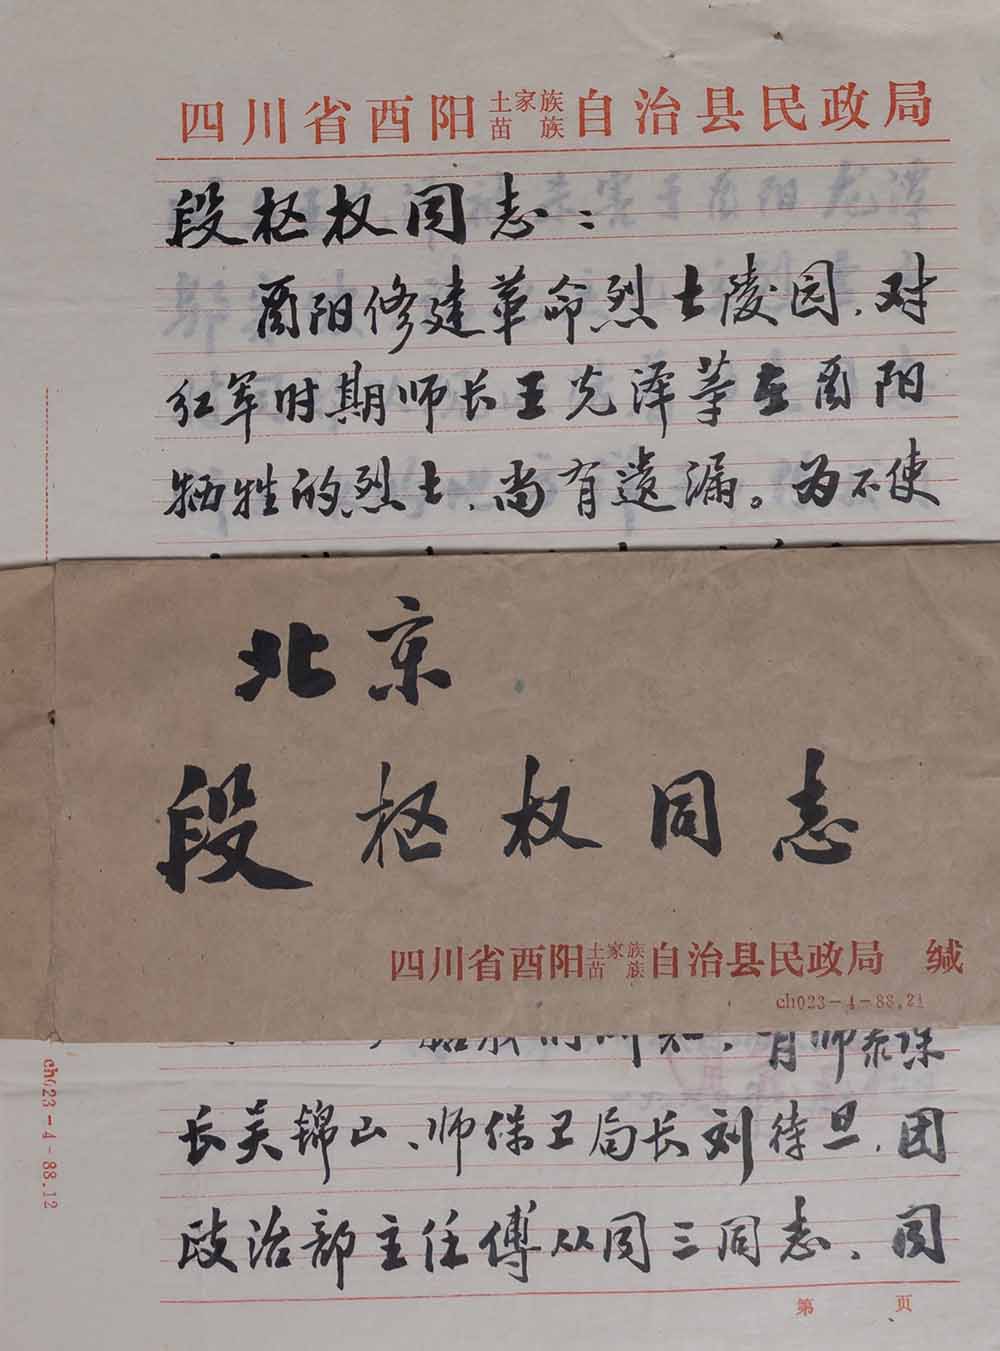 四川省酉阳土家族苗族自治县民政局
段枢权同志：
酉阳修建革命烈士陵园，对
红军时期师长王光泽等在酉阳
牺牲的烈士，尚有遗漏。为不使
北京
段枢权同志
四川省酉阳土家族苗族自治县民政局 缄
ch023-4-88.21
ch023-4-88.12
长吴锦山、师保卫局长刘待旦，团
政治部主任傅从同三同志、
第 页